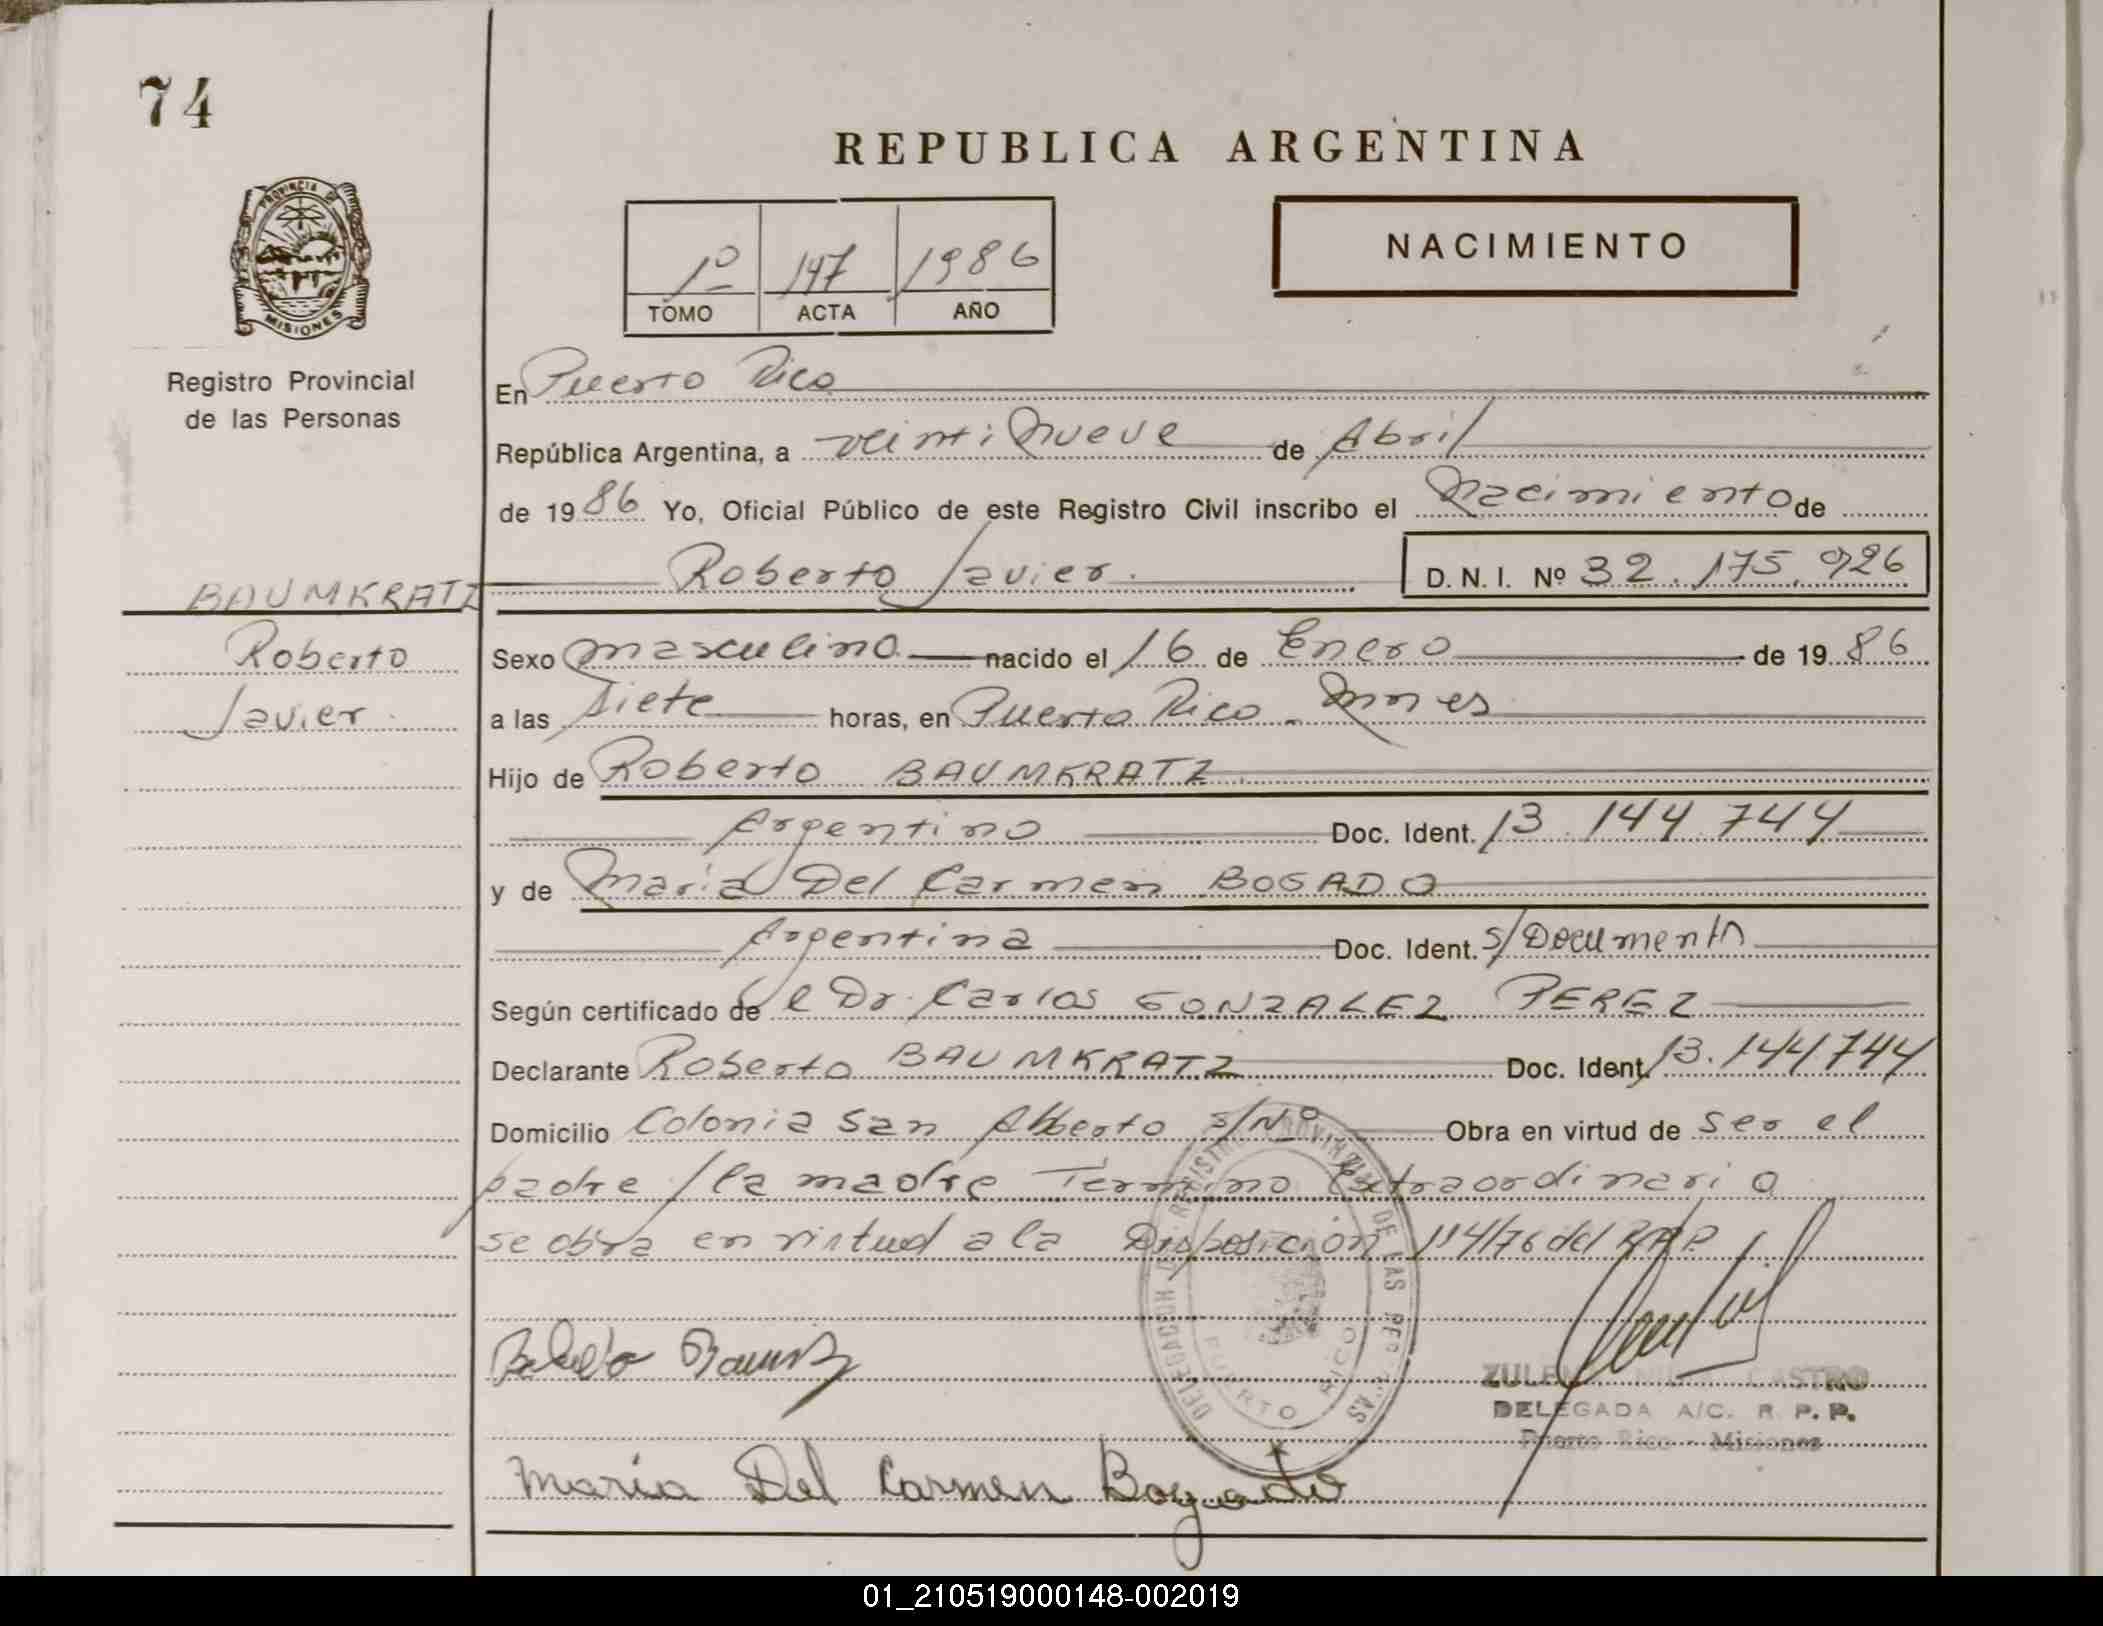 74
REPUBLICA ARGENTINA
PROVINCIA DE
MISIONES
1º 147 1986
TOMO ACTA AÑO
NACIMIENTO
Registro Provincial
de las Personas
En Puerto Rico
República Argentina, a veintinueve de Abril
de 1986 Yo, Oficial Público de este Registro Civil inscribo el Nacimiento de
BAUMKRATZ Roberto Javier. D. N. I. Nº 32.175.926
Roberto
Javier.
Sexo masculino nacido el 16 de Enero de 1986
a las siete horas, en Puerto Rico - Mnes
Hijo de Roberto BAUMKRATZ
Argentino Doc. Ident. 13.144.744
y de María Del Carmen BOGADO
Argentina Doc. Ident. s/Documento
Según certificado del Dr. Carlos GONZALEZ PEREZ
Declarante Roberto BAUMKRATZ Doc. Ident. 13.144744
Domicilio Colonia San Alberto s/Nº Obra en virtud de ser el
padre / la madre Termino Extraordinario
se obra en virtud a la Disposición 114/76 del
DELEGACION DE REGISTRO PROVINCIAL DE LAS PERSONAS
PUERTO RICO
CASTRO
DELEGADA A/C. R. P. P.
Puerto Rico - Misiones
María Del Carmen Bogado
01_210519000148-002019